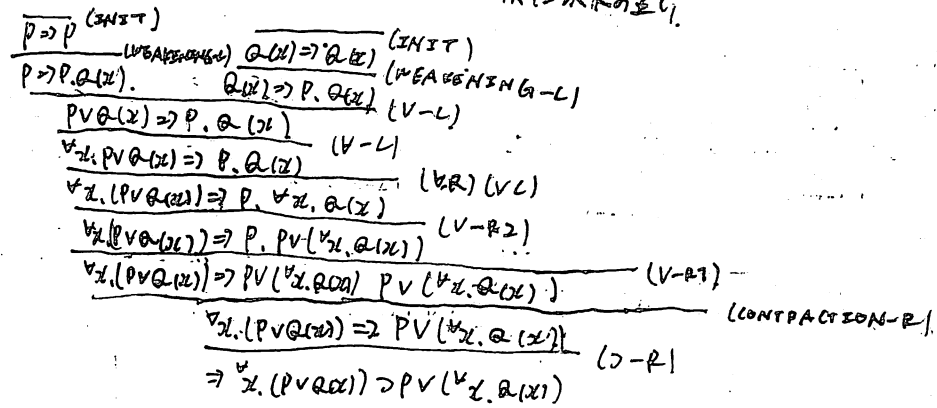 P⇒P (INIT)
P⇒P, Q(x). (WEAKENING-L) Q(x)⇒Q(x) (INIT)
Q(x)⇒P, Q(x) (WEAKENING-L)
P∨Q(x)⇒P, Q(x) (∨-L)
∀x. P∨Q(x)⇒P, Q(x) (∀-L)
∀x. (P∨Q(x))⇒P, ∀x. Q(x) (∀R) (VC)
∀x. (P∨Q(x))⇒P, P∨(∀x. Q(x)) (∨-R2)
∀x. (P∨Q(x))⇒P∨(∀x. Q(x)) P∨(∀x. Q(x)) (∨-R1)
∀x. (P∨Q(x))⇒P∨(∀x. Q(x)) (CONTRACTION-R)
⇒∀x. (P∨Q(x))⊃P∨(∀x. Q(x)) (⊃-R)